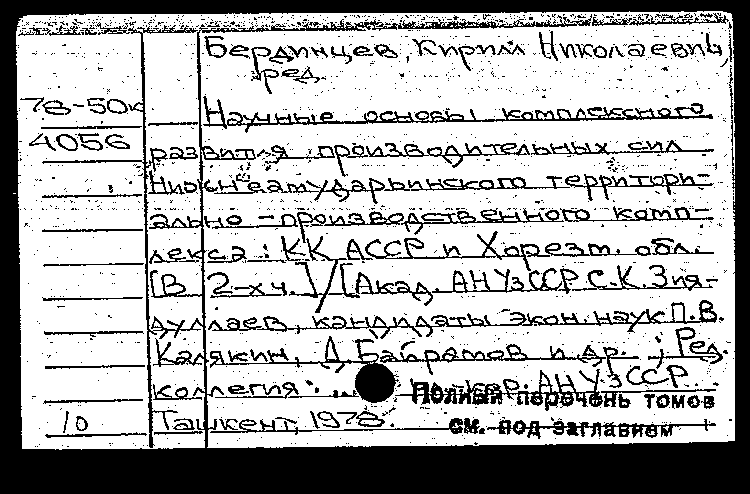 Бердинцев, Кирилл Николаевич,
ред.
78-50к Научные основы комплексного
4056 развития производительных сил
Нижнеамударьинского территори-
ально-производственного комп-
лекса: КК АССР и Хорезм. обл.
[В 2-х ч.] / [Акад. АН УзССР С.К. Зия-
дуллаев, кандидаты экон. наук П.В.
Калякин, Д. Байрамов и др. ; Ред.
коллегия: ... кор. АН УзССР
Полный перечень томов
10 Ташкент, 1978.
см. под заглавием